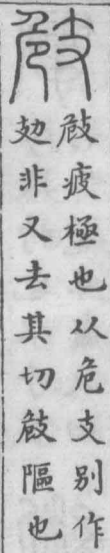 㩻
㩻疲極也从危支别作
攰非又去其切㩻䧢也